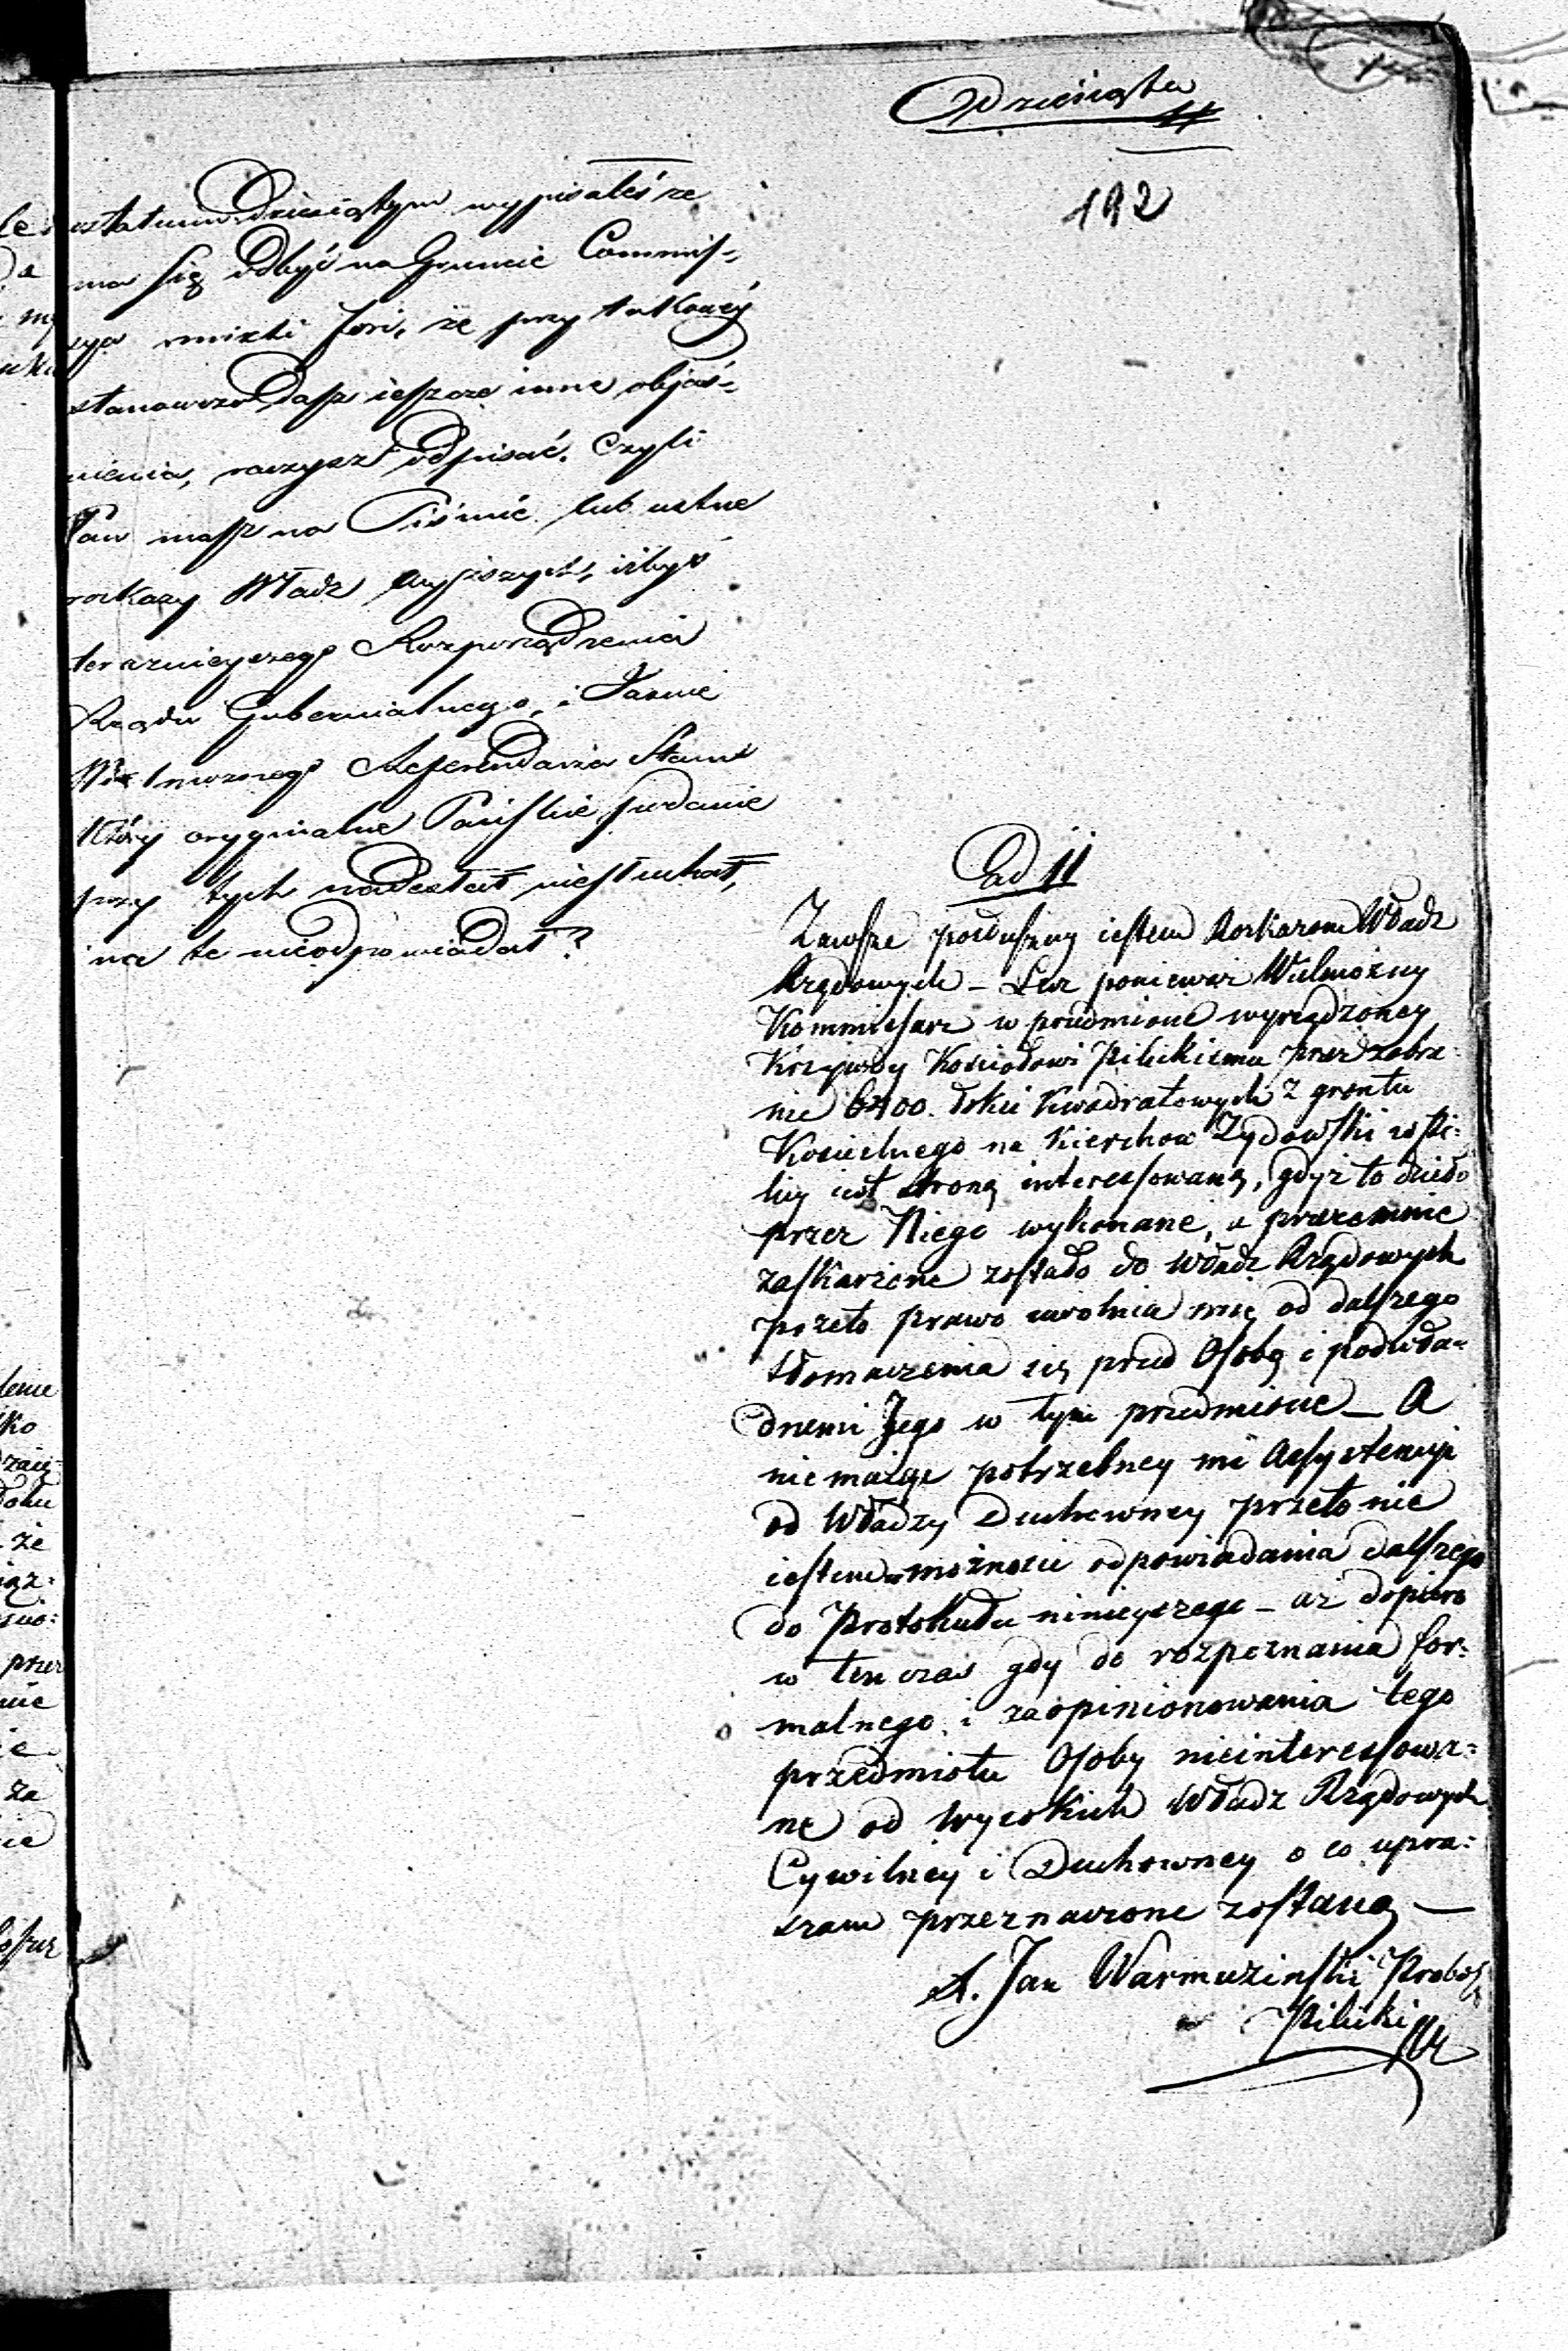 Dziesiąta
192
ostatnim Dziesiątym wypisałeś że
ma się odbyć na Gruncie Commis-,
syja mixti fori, że przy takowéj
stanowczo dasz ieszcze inne objaś-,
nienia, raczysz odpisać. Czyli
Pan masz na Piśmié lub ustne
rozkazy Władz wyższych, iżbyś
terazniejszego Rozporządzenia
Rządu Gubernialnego, i Jaśnie
Wielmożnego Referendarza Stanu
który oryginalne Pańskie podanie
przy tych nadesłał niesłuchał,
i na te nieodpowiadał?
Ad 11
Zawsze posłuszny iestem Rozkazom Władz
Rządowych – Lecz ponieważ Wielmożny
Kommissarz w przedmiocie wyrządzoney
Krzywdy Kościołowi Pilickiemu przez zabra:
nie 6400 łokci Kwadratowych z gruntu
Kościelnego na Kierchow Zydowski w Pi:
licy iest stroną interessowaną, gdyż to dzieło
przez Niego wykonane, a przezemnie
zaskarżone zostało do Władz Rządowych
przeto prawo uwolnia mię od dalszego
tłomaczenia się przed Osobą i podwła=
dnemi Jego w tym przedmiocie – A
niemaiąc potrzebney mi Assystencyi
od Władzy Duchowney przeto nie
iestem w możności odpowiadania dalszego
do Protokułu ninieyszego – aż dopiero
w ten czas gdy do rozpoznania for:
malnego i zaopiniowania tego
przedmiotu Osoby nieinteressowa:
ne od Wysokich Władz Rządowych
Cywilney i Duchowney o co upra:
szam przeznaczone zostaną —
X. Jan Warmuziński Probosz
Pilicki